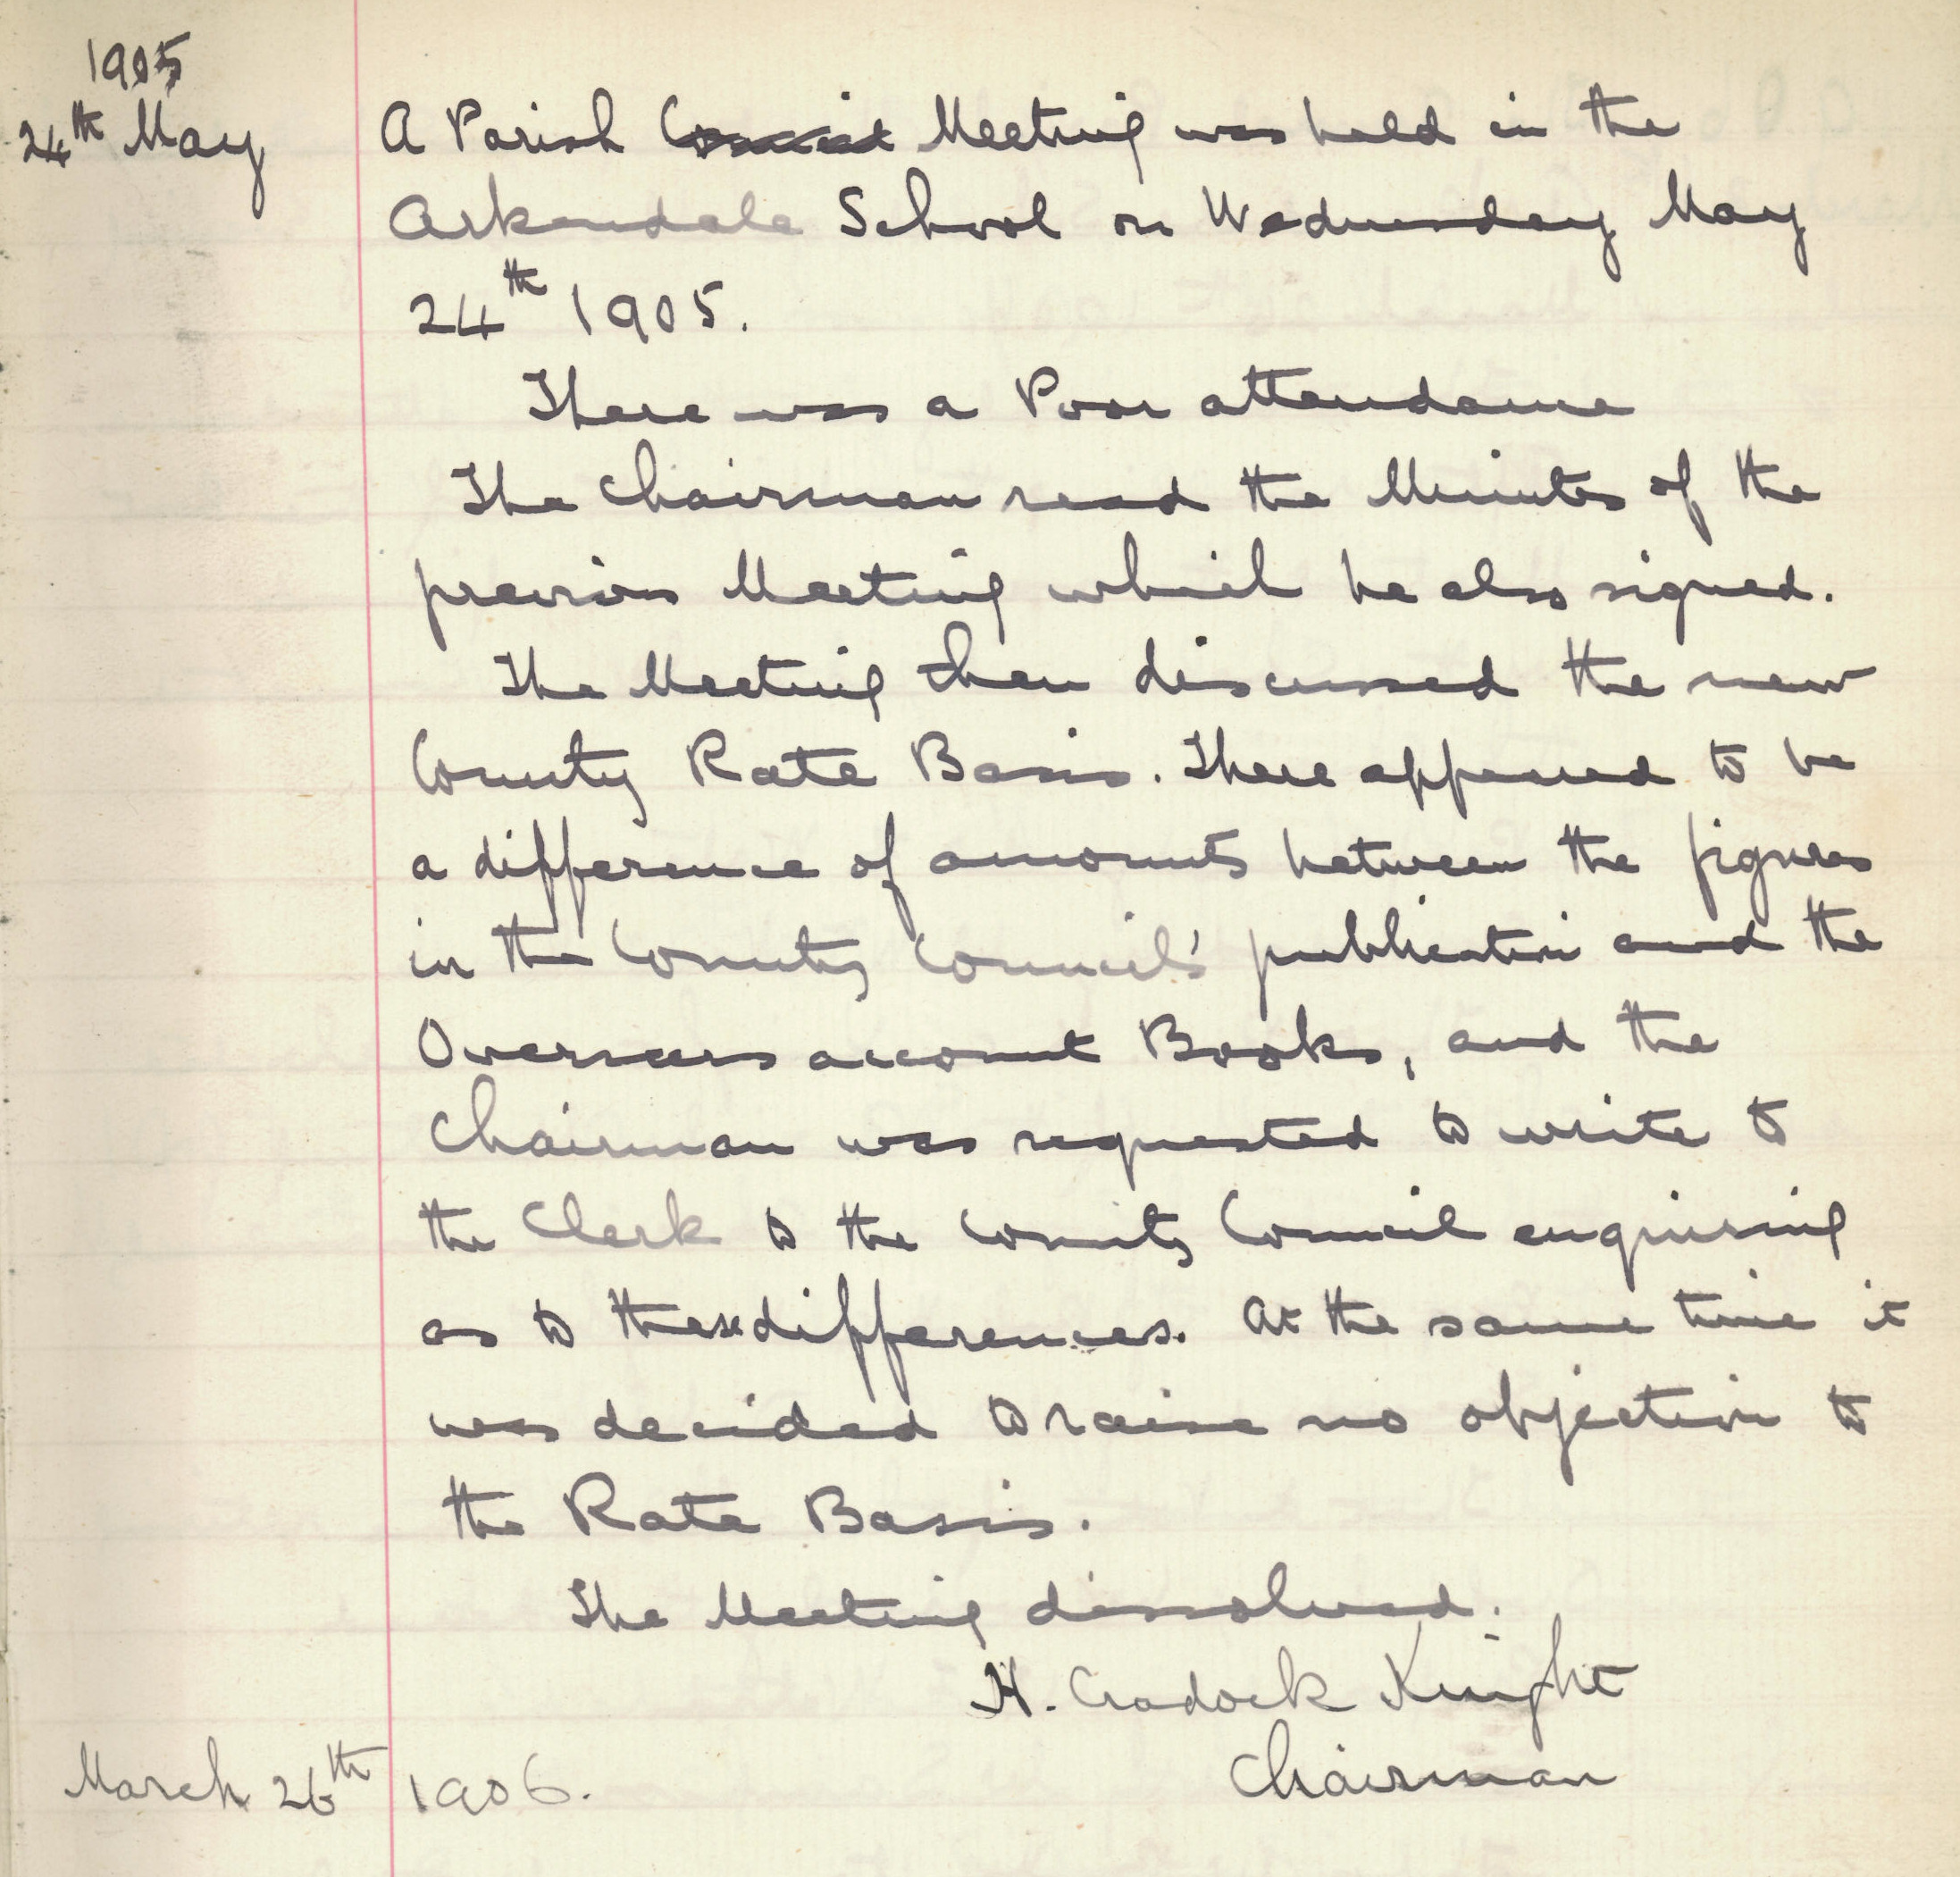 1905
24th May
A Parish Council Meeting was held in the
Arkendale School on Wednesday May
24th 1905.
There was a Poor attendance
The Chairman read the Minutes of the
previous Meeting which he also signed.
The Meeting then discussed the new
County Rate Basis. There appeared to be
a difference of amounts between the figures
in the County Council's publication and the
Overseers account Books, and the
Chairman was requested to write to
the Clerk to the County Council enquiring
as to these differences. At the same time it
was decided to raise no objection to
the Rate Basis.
The Meeting dissolved.
H. Cradock Knight
Chairman
March 26th 1906.